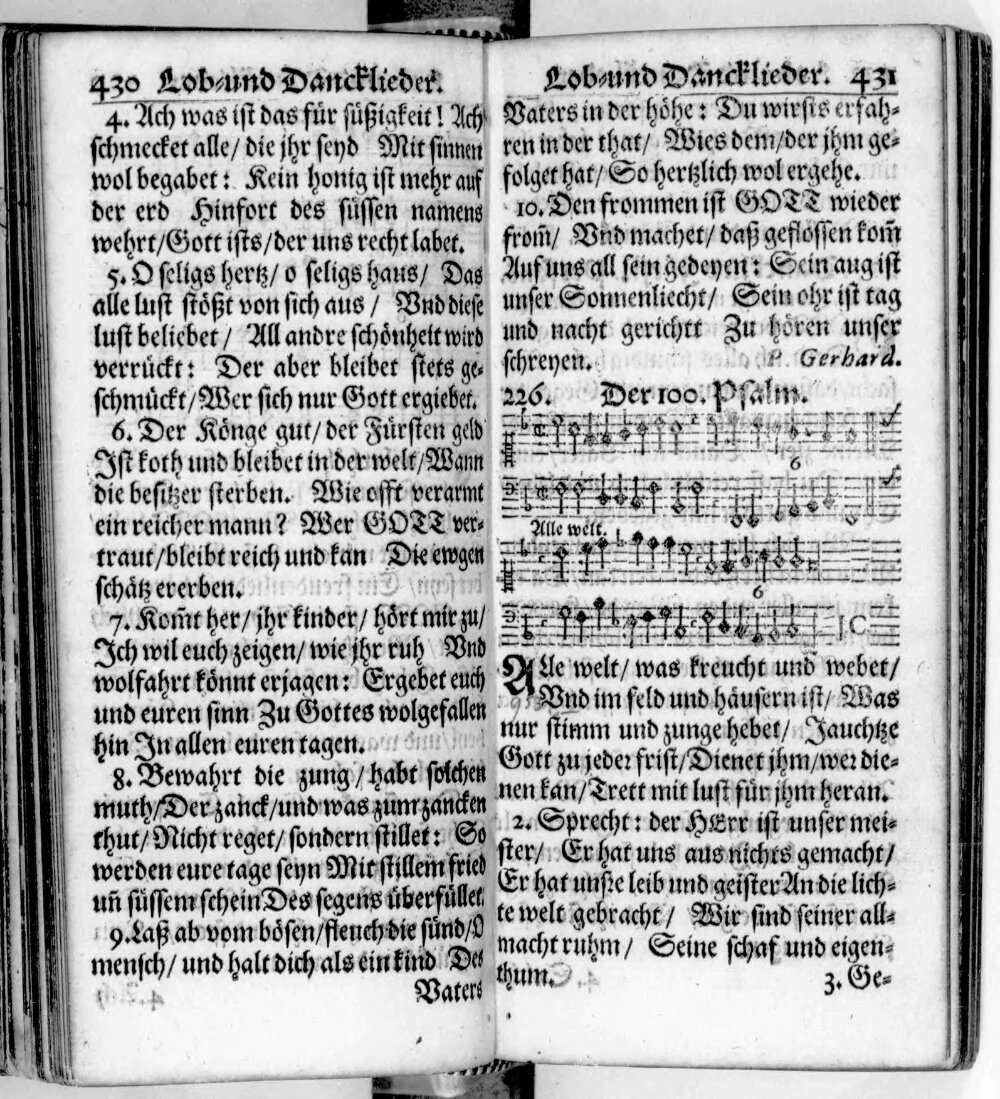 430 Lob- und Dancklieder.
4. Ach was ist das für süßigkeit! Ach
schmecket alle/ die jhr seyd Mit sinnen
wol begabet: Kein honig ist mehr auf
der erd Hinfort des süssen namens
wehrt/Gott ists/der uns recht labet.
5. O seligs hertz/ o seligs haus/ Das
alle lust stößt von sich aus/ Vnd diese
lust beliebet/ All andre schönheit wird
verrückt: Der aber bleibet stets ge-
schmückt/Wer sich nur Gott ergiebet.
6. Der Könge gut/ der Fürsten geld
Ist koth und bleibet in der welt/Wann
die besitzer sterben. Wie offt verarmt
ein reicher mann? Wer GOTT ver-
traut/bleibt reich und kan Die ewgen
schätz ererben.
7. Kom̃t her/ jhr kinder/ hört mir zu/
Ich wil euch zeigen/ wie jhr ruh Vnd
wolfahrt könnt erjagen: Ergebet euch
und euren sinn Zu Gottes wolgefallen
hin In allen euren tagen.
8. Bewahrt die zung/ habt solchen
muth/Der zanck/und was zum zancken
thut/ Nicht reget/ sondern stillet: So
werden eure tage seyn Mit stillem fried
uñ süssem schein Des segens überfüllet.
9. Laß ab vom bösen/fleuch die sünd/O
mensch/ und halt dich als ein kind Des
Vaters
Lob- und Dancklieder. 431
Vaters in der höhe: Du wirsts erfah-
ren in der that/ Wies dem/der jhm ge-
folget hat/ So hertzlich wol ergehe.
10. Den frommen ist GOTT wieder
from̃/ Vnd machet/ daß geflossen kom̃
Auf uns all sein gedeyen: Sein aug ist
unser Sonnenliecht/ Sein ohr ist tag
und nacht gerichtt Zu hören unser
schreyen. P. Gerhard.
226. Der 100. Psalm.
6
Alle welt.
6
ALle welt/ was kreucht und webet/
Vnd im feld und häusern ist/ Was
nur stimm und zunge hebet/ Jauchtze
Gott zu jeder frist/Dienet jhm/wer die-
nen kan/Trett mit lust für jhm heran.
2. Sprecht: der HErr ist unser mei-
ster/ Er hat uns aus nichts gemacht/
Er hat unsre leib und geister An die lich-
te welt gebracht/ Wir sind seiner all-
macht ruhm/ Seine schaf und eigen-
thum.
3. Ge-